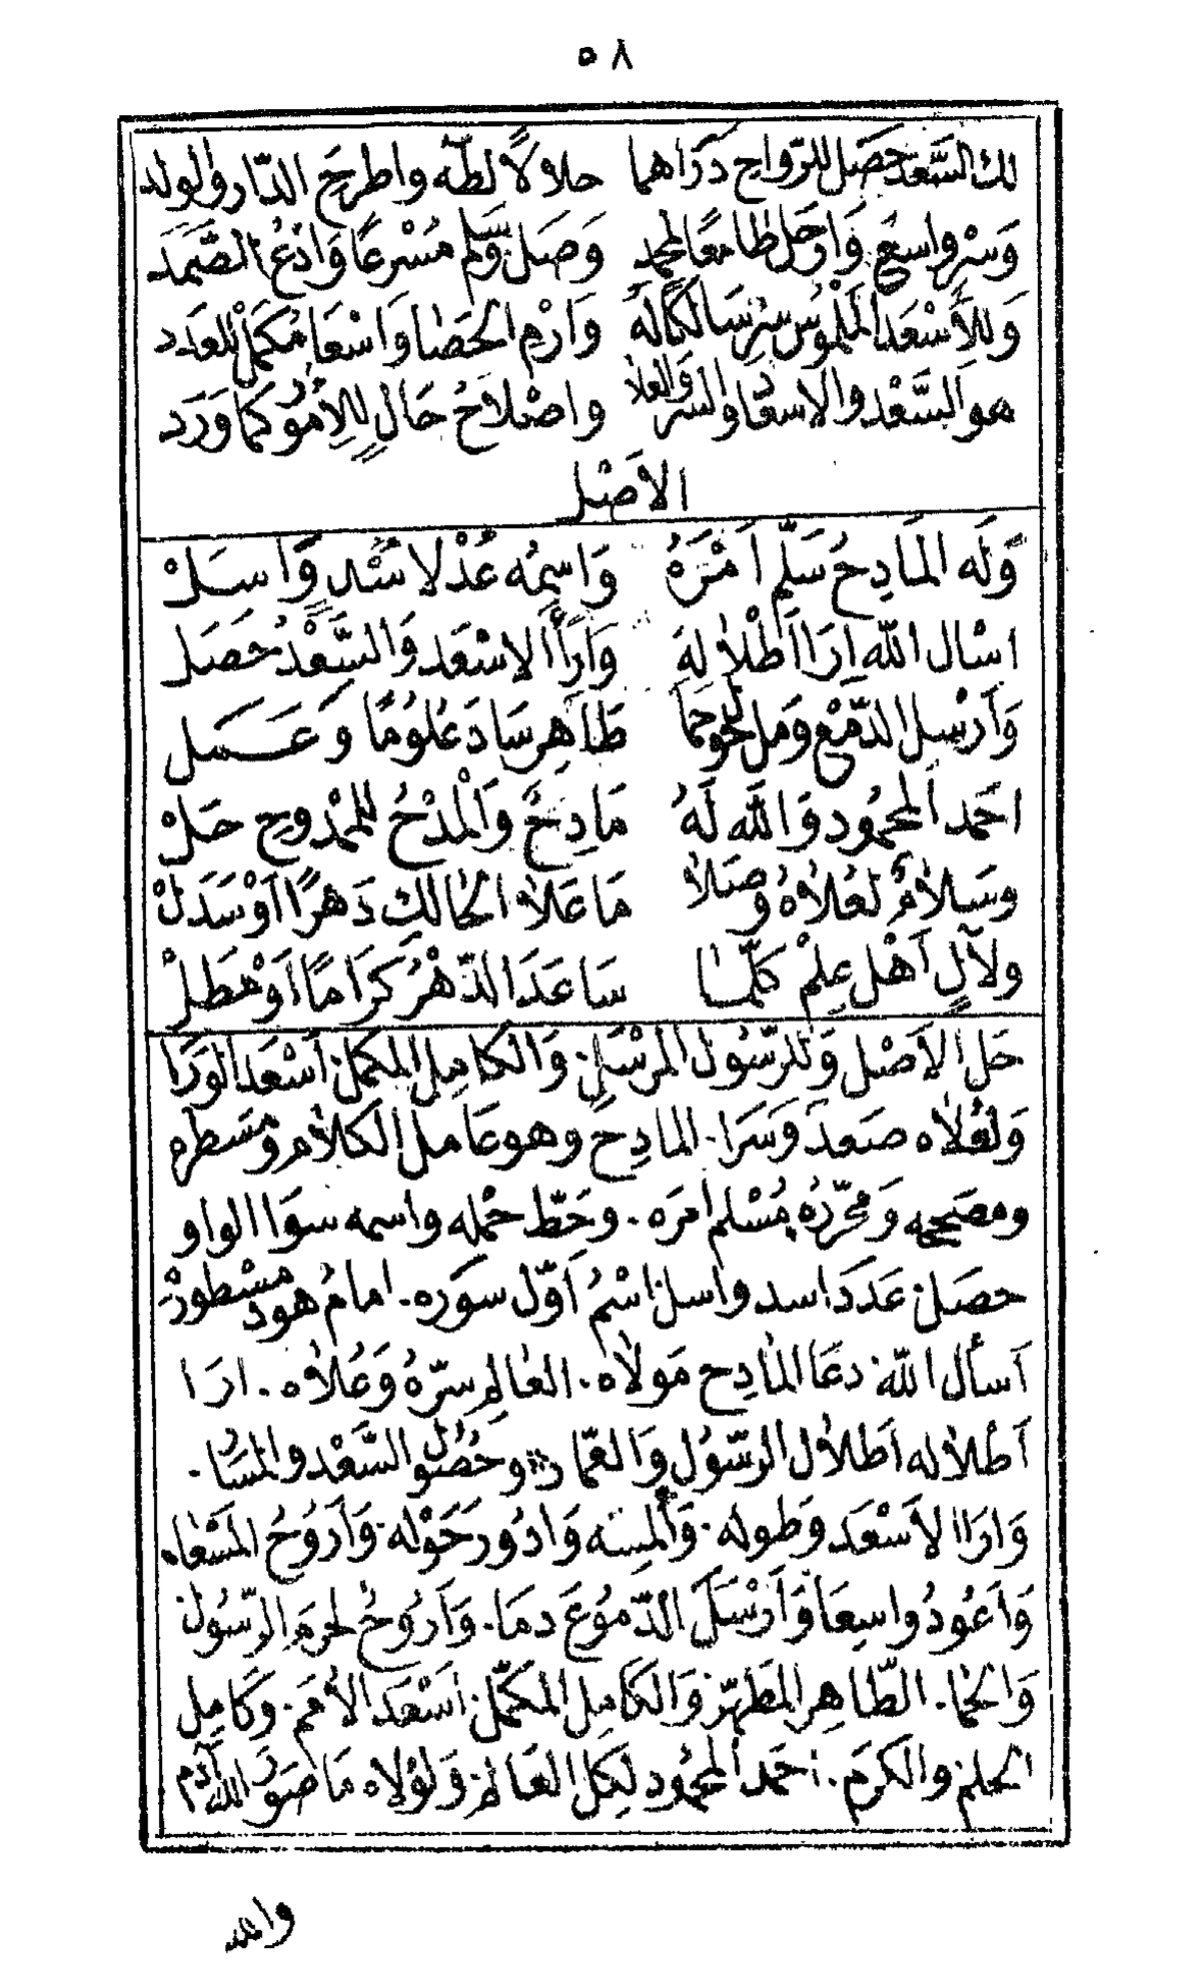 ٥٨
لك السَّعد حَصَل للرَّواح دَرَاهما حلالًا لطٰه واطرح الدّار والولد
وَسْر واسعَ وَاوحَل طامعًا لمحمد وَصَل وسَلم مُسْرعًا وَادْعُ الصَّمَد
وَللأَسْعَد المَلْمُوس سِرْ سَالكًا لَهُ وَارْم الحَصَا وَاسْعَا مُكَمل للعَدد
هو السَّعْد والاسعاد والسر والعلا واصْلاحُ حَالٍ للأمور كما وَرَد
الاَصْل
وَلَه المَادِحُ سَلَّم اَمْرَهُ وَاسِمُه عُدْ لاسَد وَاسَلْ
اسْال الله اِرَا اَطْلالهِ وَارَا الاسْعَد وَالسَّعْدُ حَصَل
وَاَرْسِل الدَّمْع وَمل نحو حما طَاهِر سَادَ عُلُومًا وَعَسَل
احَمد المحمُود وَالله لَهُ مَادِحٌ وَالْمَدْحُ للممْدوح حَلْ
وسَلاَمٌ لعُلاَهُ وصَلاَ مَا عَلاَ الحَالك دَهرًا اَوْ سَدَلْ
ولآلٍ اَهْل عِلمْ كلّما سَاعَدَ الدّهْرُ كرَامًا اَوْ هَطَلْ
حَل الاَصْل وَللرّسُول المرْسَل. وَالكامِل المكمّل أَسْعَد الوَرَا
وَلعُلاَه صَعدَ وَسَرَا. المادِح وهو عَامل الكلاَم ومسَطره
ومصَححه وَمحَرّرُه مُسْلم امرَه. وحَطّ حمْله واسمه سوَا الواو
حصَل عَدَد اسد واسل اسْمُ اَوّل سورَه. امامُ هود مسْطورهْ
اَسأل الله دعَا المادِح مَولاَه. العَالم سرّهُ وَعُلاَه. ارَا
اَطْلاله اَطلاَل الرّسُول وَالعمّاد وحُصُول السَّعْد والمسَار.
وَارَا الاَسْعَد وَطوله. وَاَلمسه وَادُورَ حَوْله. وَاَروحُ المَسْعَاه
وَاَعُود واسعَا وَاَرْسَلَ الدّمُوعَ دمَا. وَاَرُوحُ لحرم الرّسُول
وَالحمَا. الطّاهِر المطَهّر وَالكَامِل المكمّل اَسْعَد الأمَم. وكَامِل
الحلم والكرَم. احَمد المحمُود لكل العَالم وَلوْلاه مَا صَوّرَ الله آدَم
والله